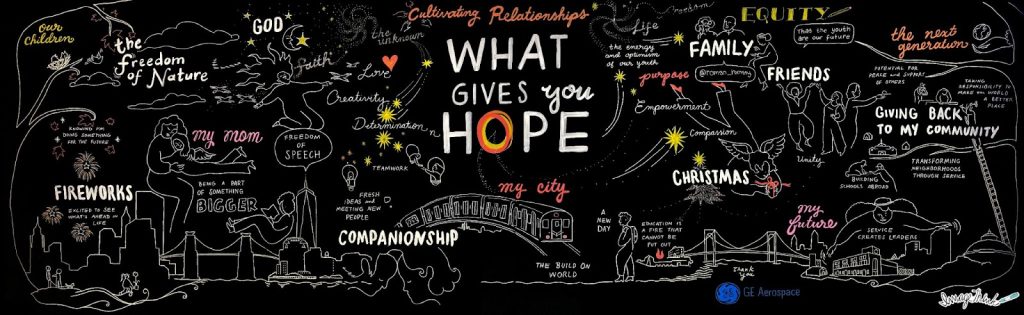 our
children
the
freedom
of Nature
GOD
faith
the
unknown
Love
Creativity
Determination
TEAMWORK
Cultivating Relationships
WHAT
GIVES you
HOPE
Life
freedom
the energy
and optimism
of our youth
purpose
Empowerment
Compassion
FAMILY
@roman_rommy
EQUITY
That the youth
are our future
FRIENDS
Unity
the next
generation
POTENTIAL FOR
PEACE and SUPPORT
OF OTHERS
TAKING
RESPONSIBILITY TO
MAKE our WORLD
A BETTER
PLACE
GIVING BACK
TO MY COMMUNITY
TRANSFORMING
NEIGHBORHOODS
THROUGH SERVICE
BUILDING
SCHOOLS ABROAD
SERVICE
CREATES LEADERS
my
future
CHRISTMAS
KNOWING I'M
DOING SOMETHING
FOR THE FUTURE
FIREWORKS
EXCITED TO SEE
WHAT'S AHEAD in
LIFE
my mom
FREEDOM
OF
SPEECH
BEING A PART
OF SOMETHING
BIGGER
FRESH
IDEAS and
MEETING NEW
PEOPLE
COMPANIONSHIP
my city
THE BUILD ON
WORLD
A NEW
DAY
EDUCATION IS
A FIRE THAT
CANNOT BE
PUT OUT
Thank
You
GE Aerospace
ImageThink